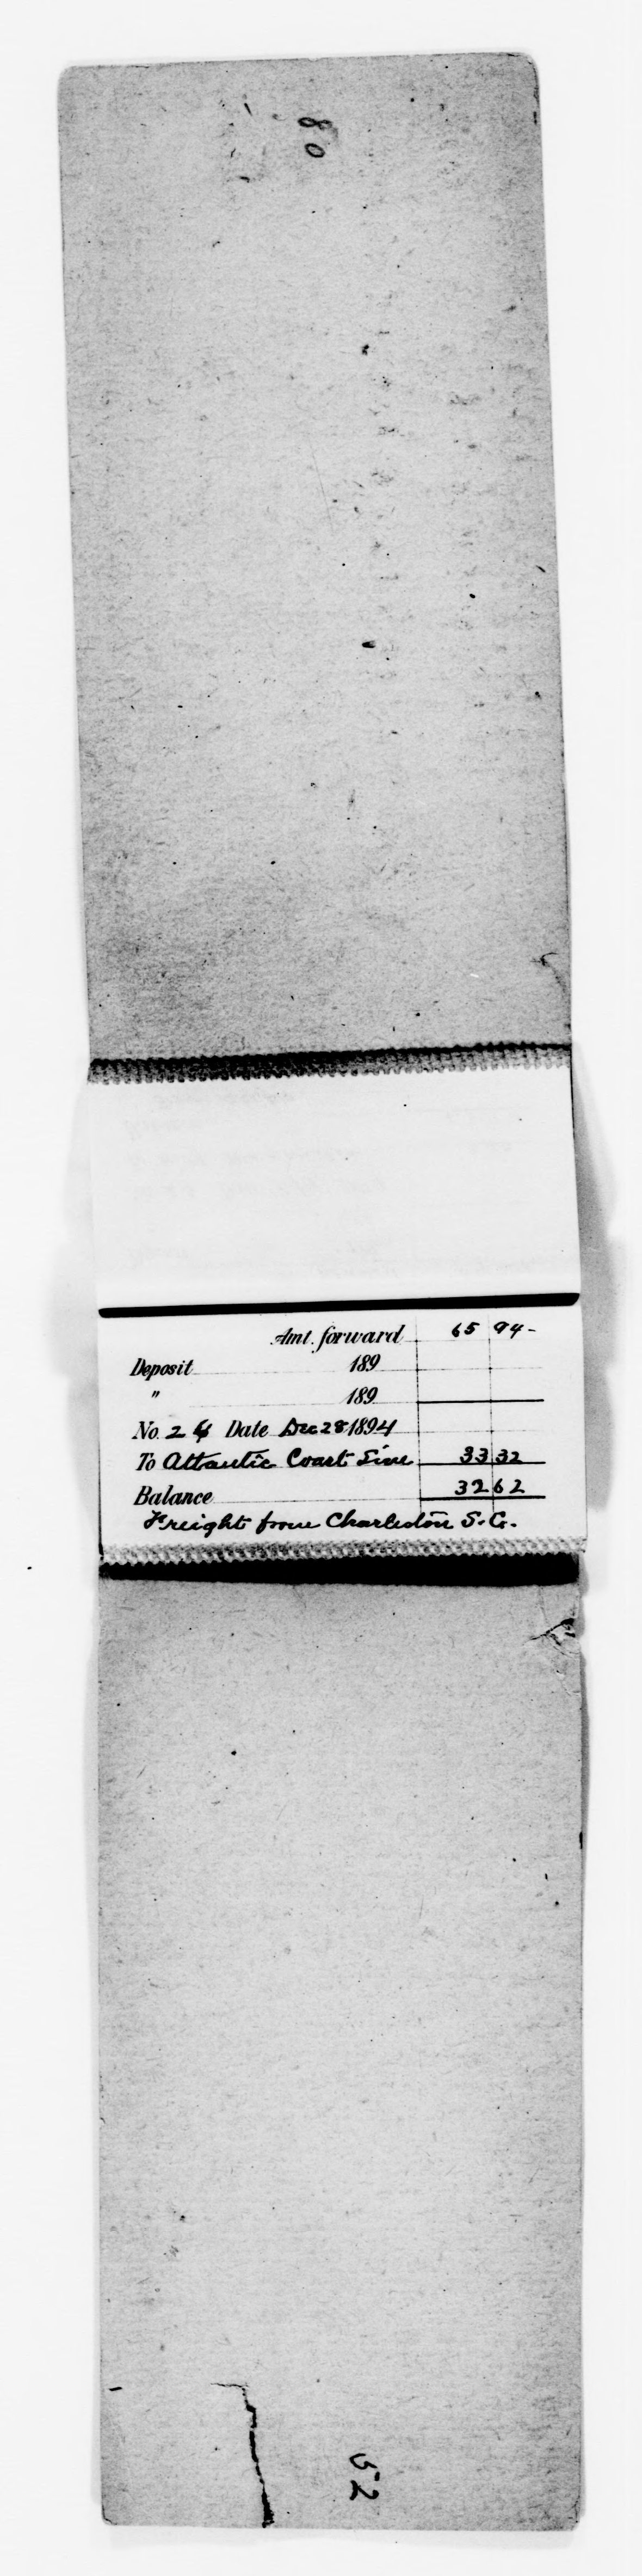 80
Amt. forward 65 94-
Deposit 189
" 189
No. 24 Date Dec 28 1894
To Atlantic Coast Line 33 32
Balance 32 62
Freight from Charleston S.C.
52